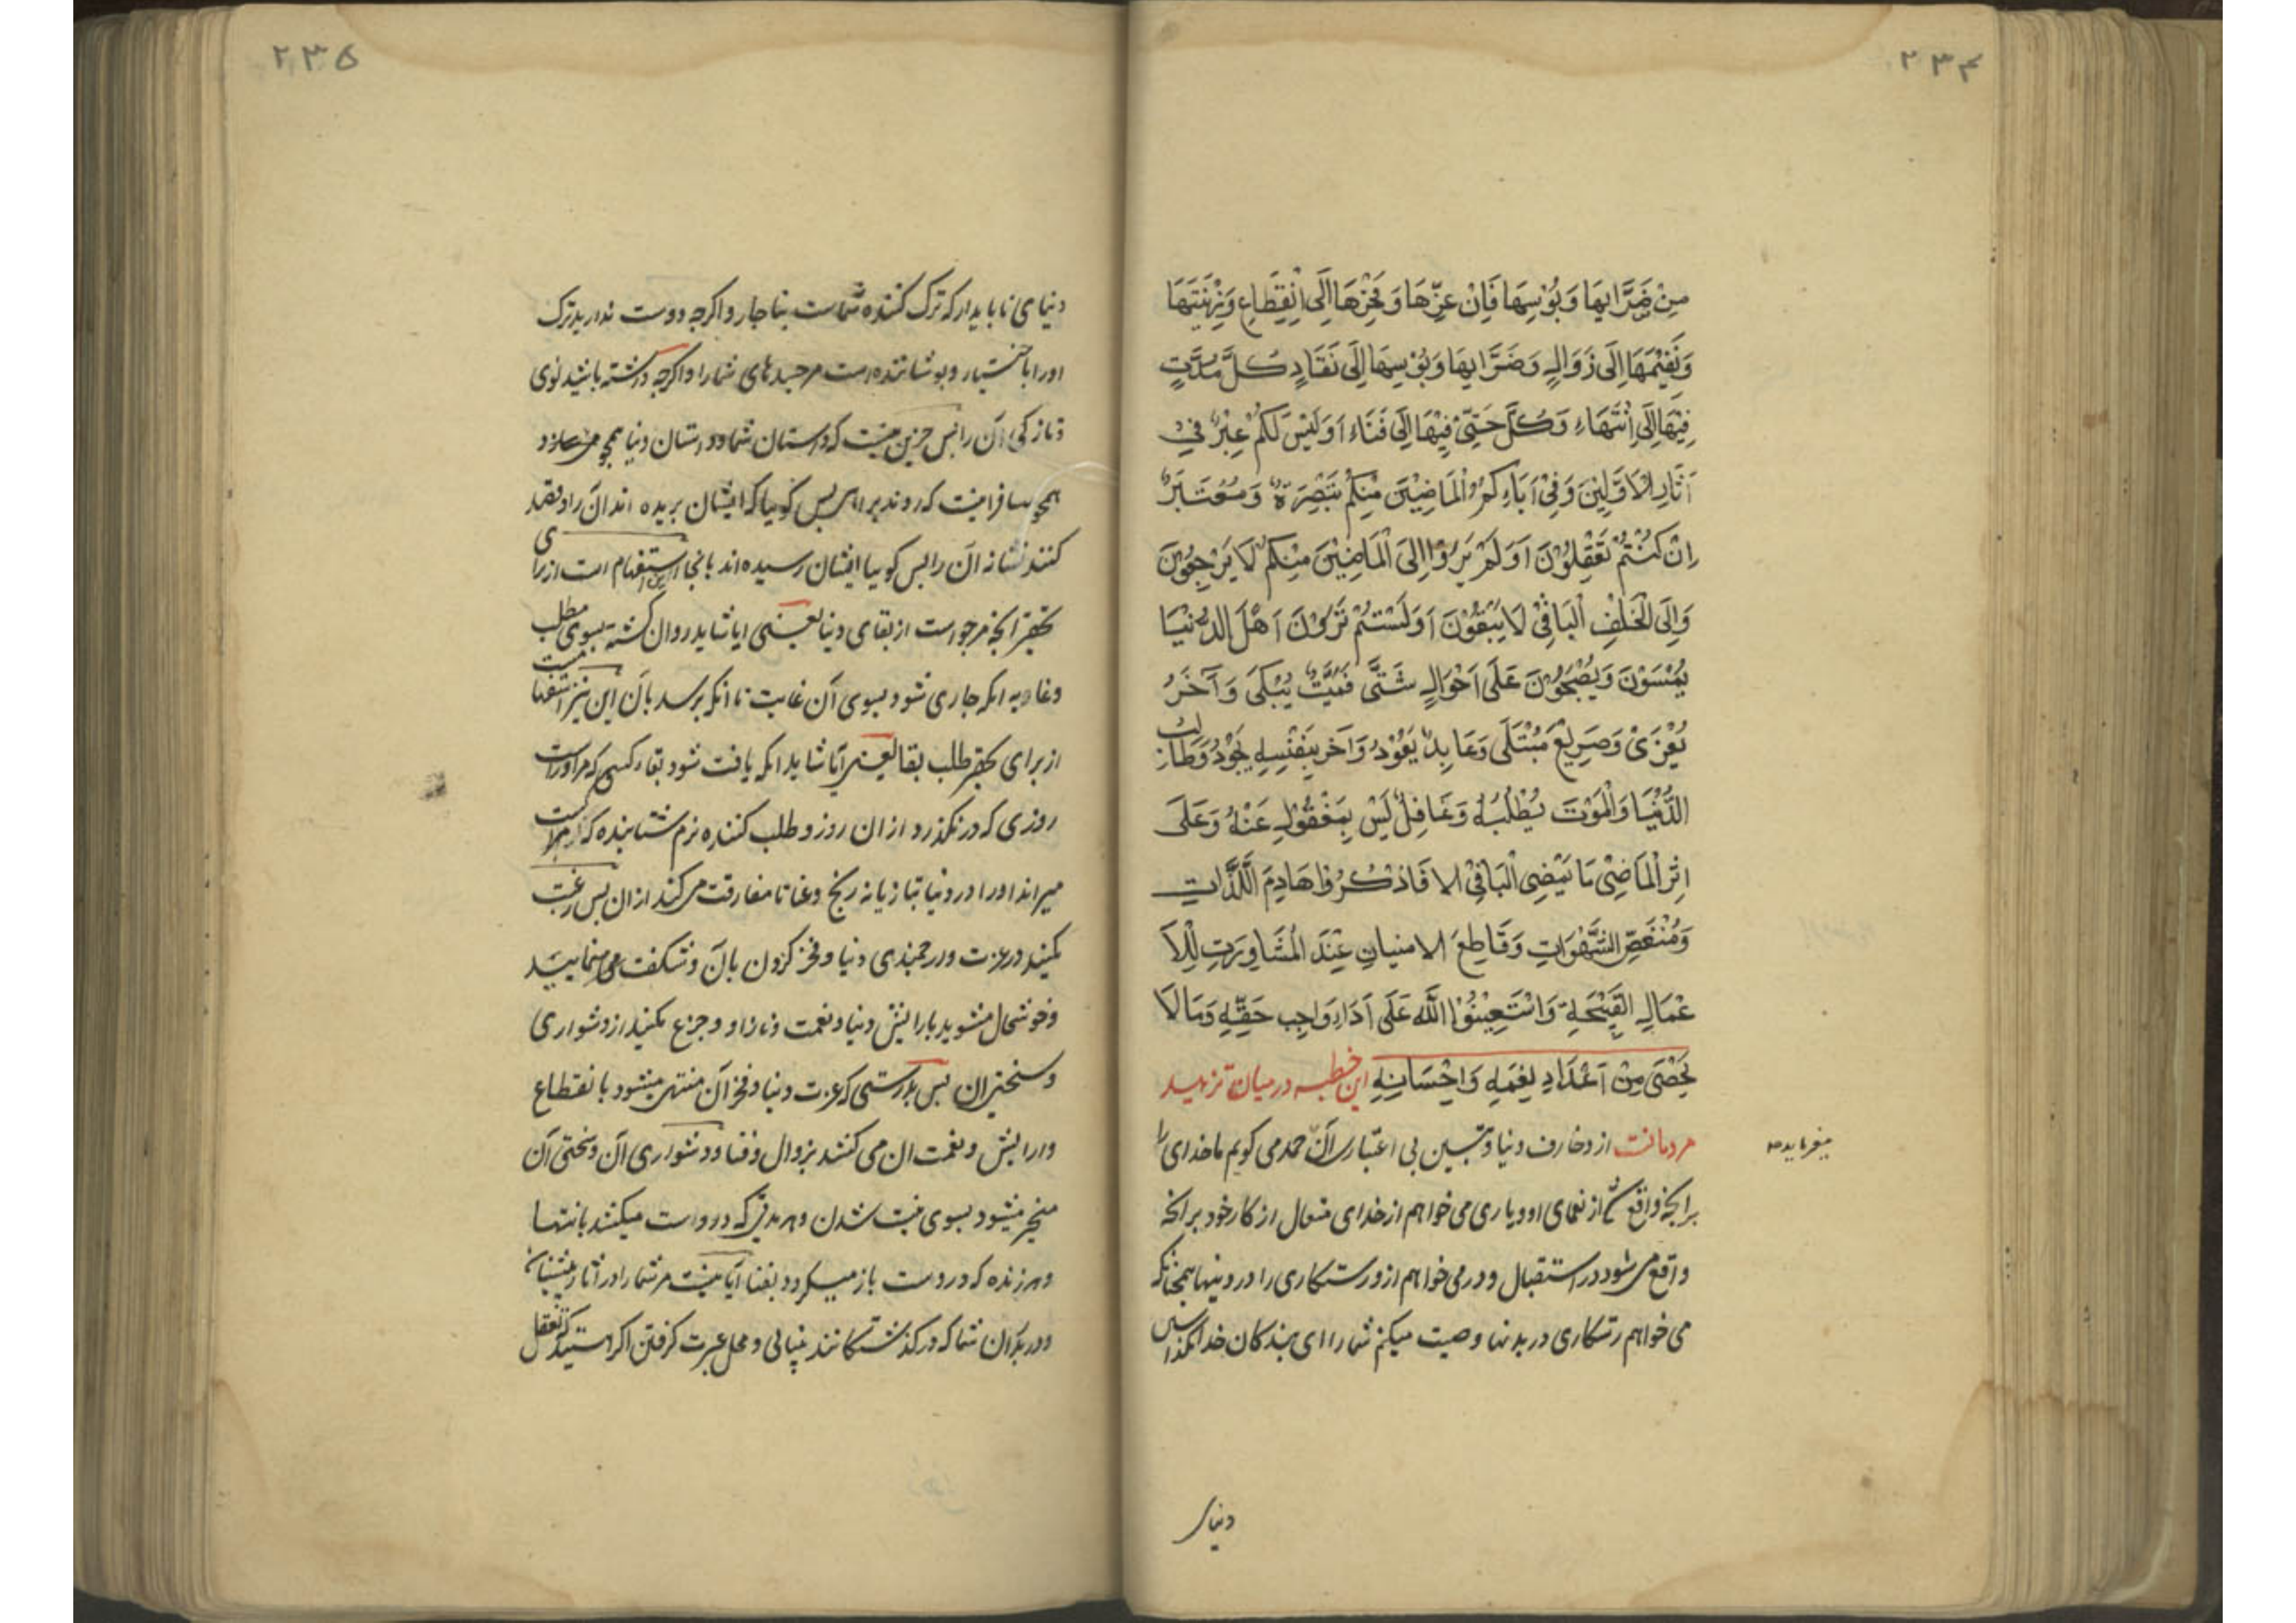 ۲۳۴
مِنْ ضَرَّائِهَا وَبُؤْسِهَا فَاِنْ عِزّهَا وَفَخْرَهَا اِلَى انْقِطَاعٍ وَزِيْنَتَهَا
وَنَعِيْمَهَا اِلَى زَوَالٍ وَضَرَّائِهَا وَبُؤْسِهَا اِلَى نَفَادٍ كُلَّ مُدَّتٍ
فِيْهَا اِلَى اِنْتَهَاءٍ وَكُلَّ حَيّ فِيْهَا اِلَى فَنَاءٍ اَوَلَيْسَ لَكُمْ عِبْرٌ فِي
آثَارِ الْاَوَّلِيْنَ وَفِيْ آبَاءِكُمُ الْمَاضِيْنَ مِنْكُمْ تَبْصِرَةٌ وَمُعْتَبَرٌ
اِنْ كُنْتُمْ تَعْقِلُوْنَ اَوَلَمْ يَرَوْا اِلىَ الْمَاضِيْنَ مِنْكُمْ لَا يَرْجِعُوْنَ
وَاِلَى الْخَلْفِ الْبَاقِيْ لَا يَبْقَوْنَ اَوَلَسْتُمْ تَرَوْنَ اَهْلَ الدُّنْيَا
يُمْسَوْنَ وَيُصْبِحُوْنَ عَلَى اَحْوَالٍ شَتَّى فَمَيَّتٌ يُبْكَى وَآخَرُ
يُعْزَىْ وَصَرِيْعٌ مُبْتَلَى وَعَايِدٌ يَعُوْدُ وَآخَر بِنَفْسِهِ يَجُوْدُ وَطَالِبٌ
الدُّنْيَا وَالْمَوْتَ يَطْلُبُهُ وَغَافِلٌ لَيْسَ بِمَغْفُوْلٍ عَنْهُ وَعَلَى
اِثْرِ الْمَاضِيْ مَا يَمْضِى الْبَاقِيْ الا فَاذْكُرُوْا هَادِمَ اللَّذَّاتِ
وَمُنْغَصِّ الشَّهَوَاتِ وَقَاطِعَ الامنيان عِنْدَ الْمُشَاوِرَتِ لِلْاَ
عْمَالِ الْقَبِيْحَةِ وَاسْتَعِيْنُوْا اللَّهَ عَلَى اَدَاءِ وَاجِبِ حَقّهِ وَمَا لَا
يُحْصَى مِنْ اَعْدَادِ نِعَمِهِ وَاِحْسَانِهِ این خطبه در میان تزهید
مردمانست از دخارف دنیا و تبیین بی اعتباری آن حمد می کویم ما خدای را
میفرماید ص
برانچه واقع شد از نعمای او و یاری می خواهم از خدای متعال از کار خود برانچه
واقع می شود در استقبال و در می خواهم ازو رستکاری را در دینها همچنانکه
می خواهم رستکاری در بدنها وصیت میکنم شما را ای بندکان خدا بکذاشتن
دنیای
۲۳۵
دنیای ناپایدار که ترک کننده شماست بناچار و اکرچه دوست ندارید ترک
او را باختیار و پوشاننده است مر جسدهای شما را و اکرچه داشته باشید نوی
و تازکی آن را پس جزین نیست که داستان شما و داستان دنیا همچو
همچو مسافرانیست که روند براهی پس کویا که ایشان بریده اند آن را و قصد
کنند نشانه آن را پس کویا ایشان رسیده اند بانجا این استفهام است از برای
تحقیر انچه مرجواست از بقای دنیا یعنی ایا شاید روان کشته بسوی مطلب
و غایه انکه جاری شود بسوی آن غایت تا انکه برسد بآن این نیز استفهامست
از برای تحقیر طلب بقا یعنی آیا شاید انکه یافت شود بقاء کسی که مر اوراست
روزی که در نکذرد از ان روز و طلب کننده نرم شتابنده که از مرکست
میراند او را در دنیا بتازیانه رنج و عنا تا مفارقت می کند از ان پس رغبت
مکنید در عزت و ارجمندی دنیا و فخر کردن بآن و شکفت می منمایید
و خوشحال مشوید بارایش دنیا و نعمت و ناز او و جزع مکنید از دشواری
و سختی ان پس بدرستی که عزت دنیا و فخر آن منتهی میشود بانقطاع
و ارایش و نعمت ان می کشند بزوال و فنا و دشواری آن و سختی آن
منجر میشود بسوی نیست شدن و هر مدتی که دروست میکشد بانتها
و هر زنده که دروست باز میکردد بفنا آیا نیست مر شما را در آثار پیشینیان
و در پدران شما که در کذشتکانند بینایی و محل عبرت کرفتن اکر هستید که تعقل